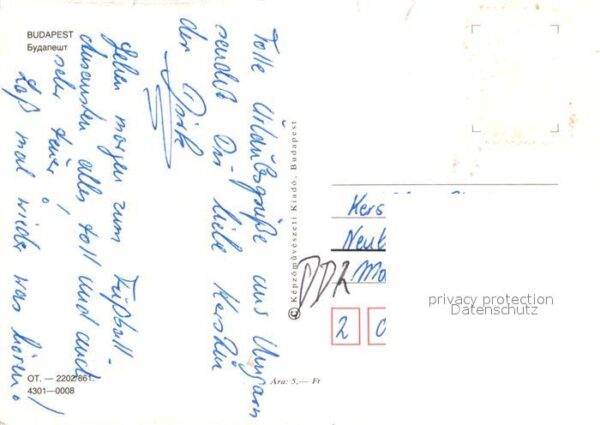 BUDAPEST
Будапешт
Tolle Urlaubsgrüße aus Ungarn
sendet Dir liebe Kerstin
der Dirk
Gehen morgen zum Fußball
Ansonsten alles toll und auch
sehr teuer!
Laß mal wieder was hören!
OT. — 2202/861.
4301—0008
Ára: 5,— Ft
© Képzőművészeti Kiadó, Budapest
Kers
Neut
DDR
2
privacy protection
Datenschutz